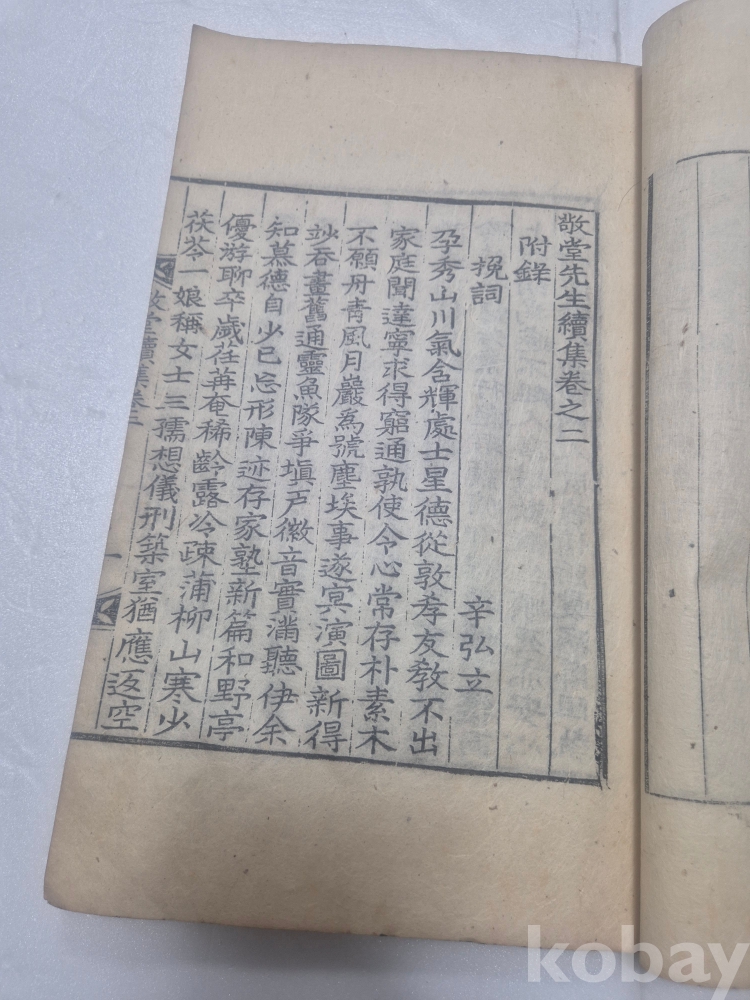 敬堂先生續集卷之二
附錄
挽詞
辛弘立
孕秀山川氣含輝處士星德從敦孝友敎不出
家庭聞達寧求得窮通孰使令心常存朴素木
不願丹靑風月巖爲號塵埃事遂冥演圖新得
妙呑畫舊通靈魚隊爭塡戶徽音實滿聽伊余
知慕德自少已忘形陳迹存家塾新篇和野亭
優游聊卒歲荏苒奄稀齡露冷疎蒲柳山寒少
茯苓一娘稱女士三孺想儀刑築室猶應返空
敬堂續集卷二
一
kobay